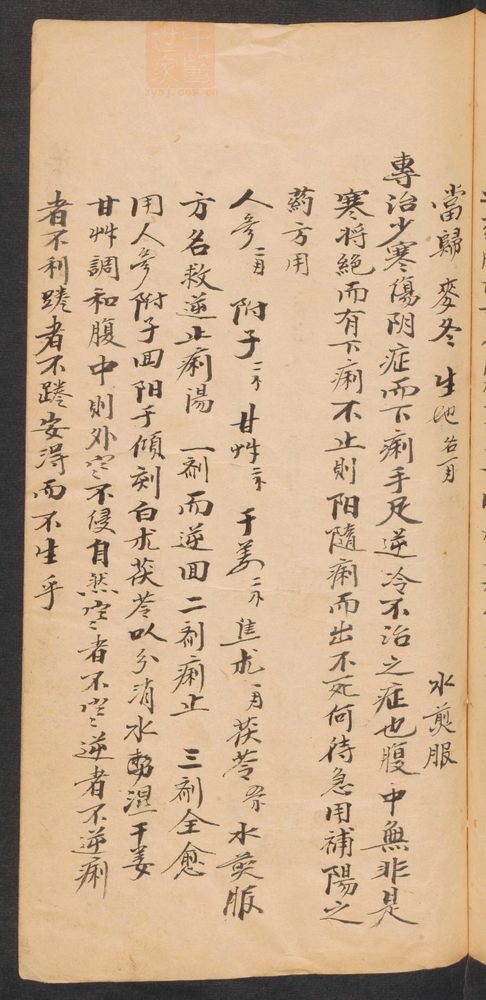 當歸 麥冬 生地 各一両 水煎服
專治少寒傷阴症而下痢手足逆冷不治之症也腹中無非是
寒将絕而有下痢不止則阳隨痢而出不死何待急用補陽之
葯方用
人參 附子 甘艸 干姜 焦朮 茯苓 水煎服
方名救逆止痢湯 一剤而逆回二剤痢止 三剤全愈
用人參附子回阳于傾刻白朮茯苓以分消水湿干姜
甘艸調和腹中則外寒不侵自然寒者不寒逆者不逆痢
者不利踡者不踡安得而不生乎